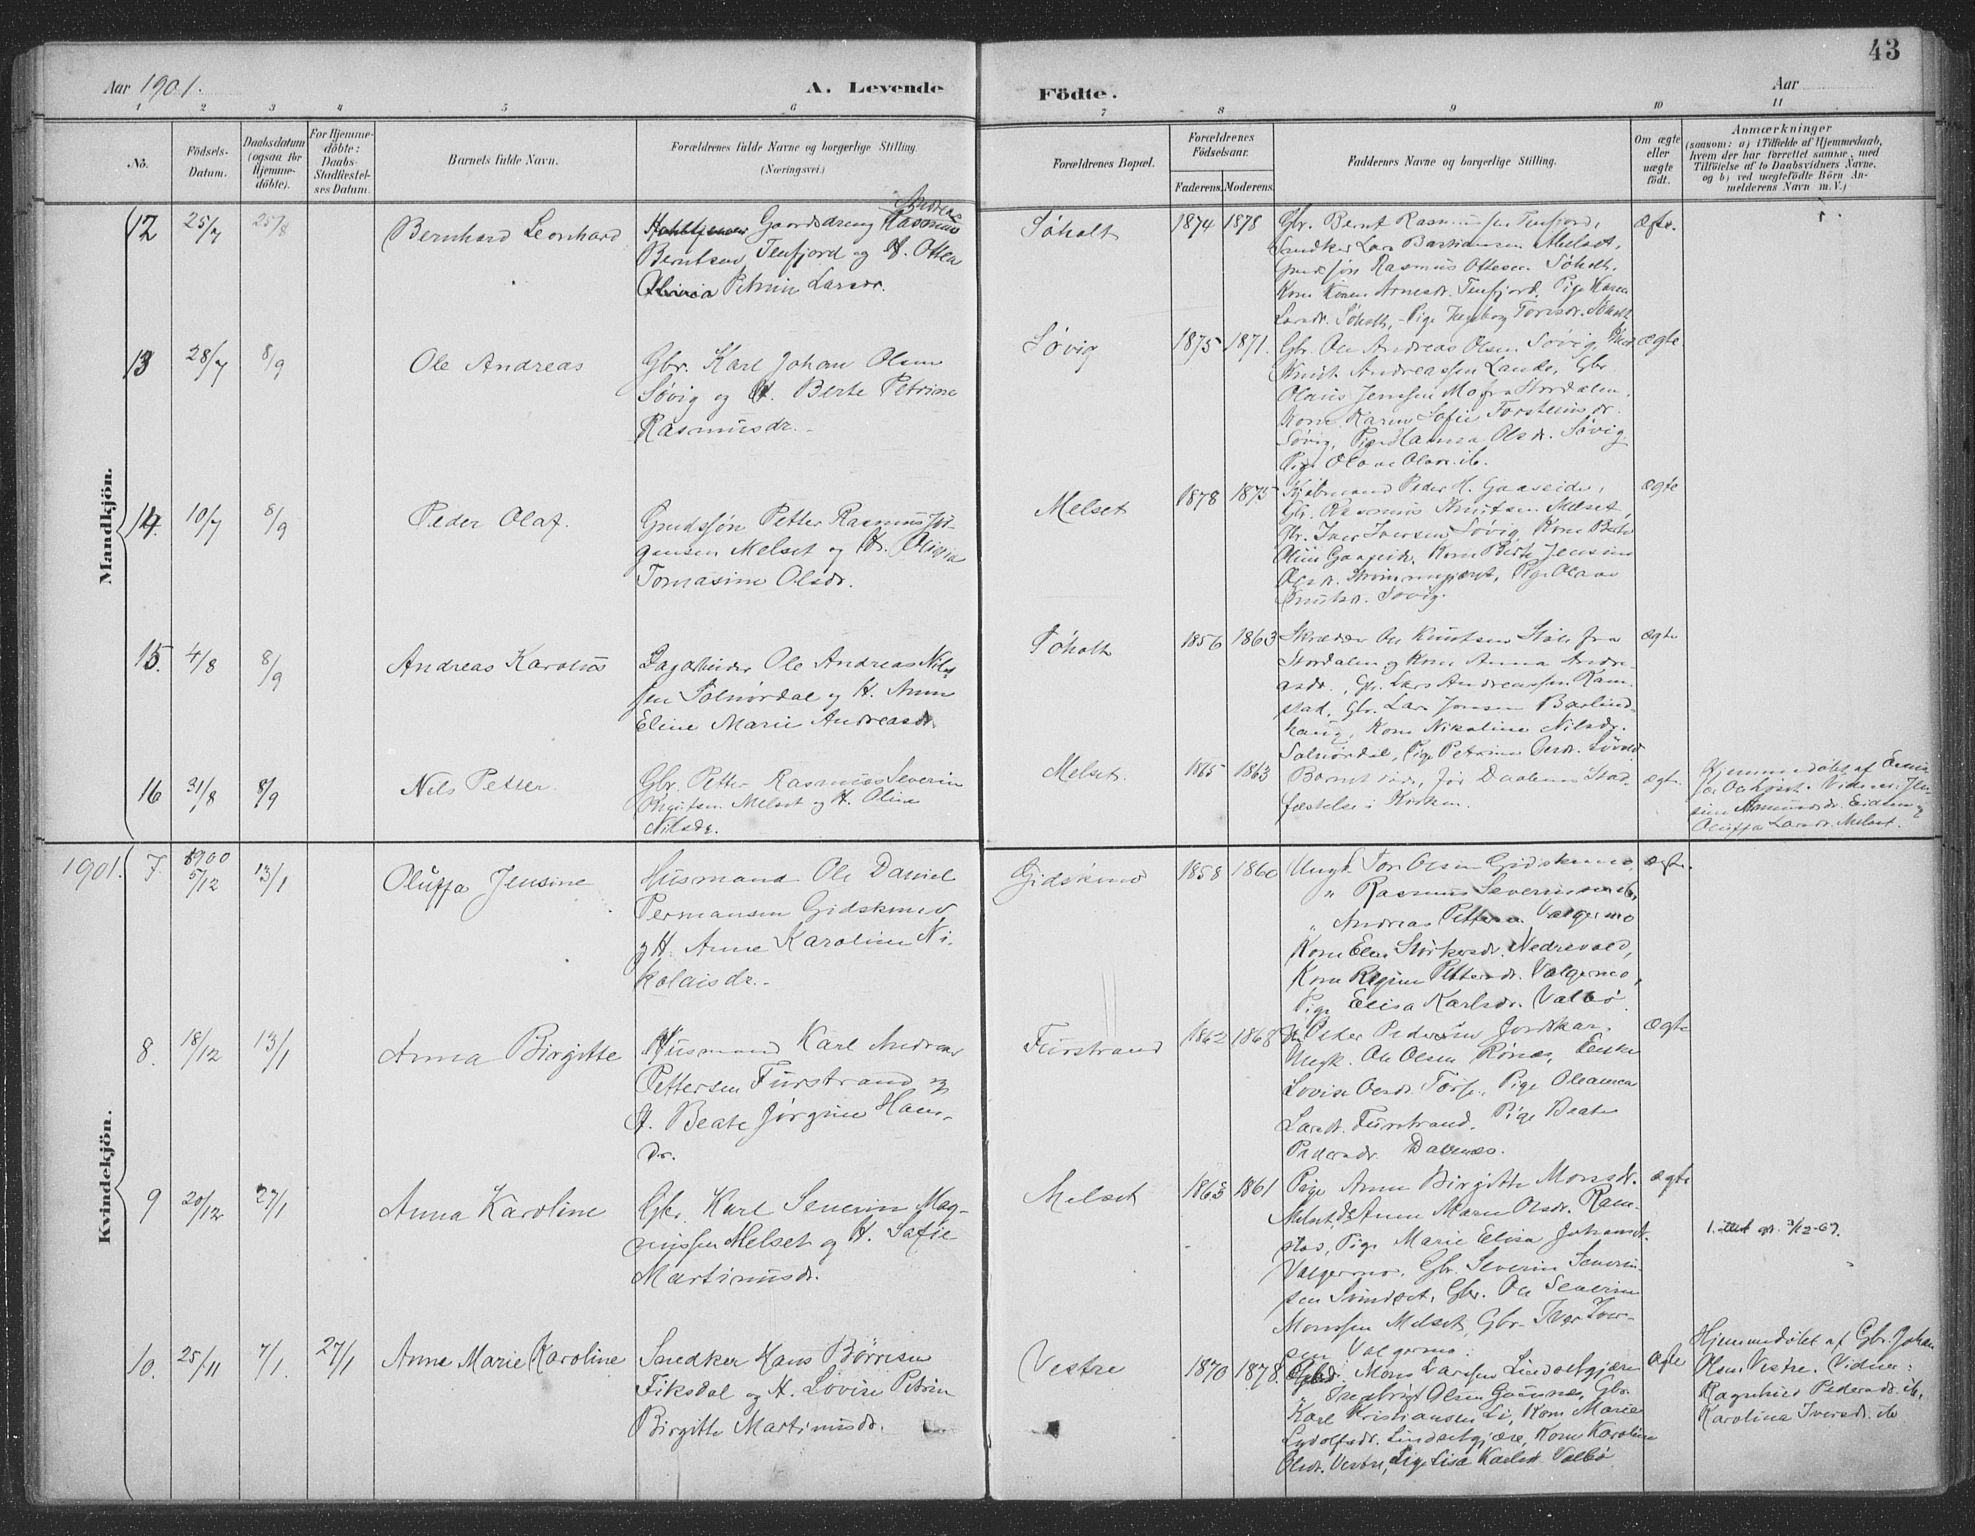 43
Aar 1901.
A. Levende Födte.
Aar
1 2 3 4 5 6 7 8 9 10 11
No.
Födsels-Datum.
Daabsdatum (ogsaa for Hjemme-döbte).
For Hjemme-döbte: Daabs-Stadfæstel-ses Datum.
Barnets fulde Navn.
Forældrenes fulde Navne og borgerlige Stilling. (Næringsvei.)
Forældrenes Bopæl.
Forældrenes Födselsaar.
Faderens. Moderens.
Faddernes Navne og borgerlige Stilling.
Om ægte eller uægte födt.
Anmærkninger (saasom: a) i Tilfælde af Hjemmedaab, hvem der har forrettet samme, med Tilföielse af to Daabsvidners Navne, og b) ved uægtefödte Börn An-melderens Navn m. V.)
Mandkjön.
12 25/7 25/8 Bernhard Leonhard
Gaardsdreng Rasmus Andreas
Berntsen Tenfjord og H. Ottea
Petrin Larsdr.
Søholt 1874 1878
Gbr. Bernt Rasmussen Tenfjord,
Snedker Lars Bastiansen Melset,
Rasmus Ottesen Søholt,
Kone Karen Arnesdr. Tenfjord, Pige Karen
Larsdr. Søholt, Pige Ingeborg Søholt
ægte.
13 28/7 8/9 Ole Andreas
Gbr. Karl Johan Olsen
Søvig og H. Berte Petrine
Rasmusdr.
Søvig 1875 1871.
Gbr. Ole Andreas Olsen Søvig,
Knut Andreassen Lande, Gbr.
Olaus Jenssen Mo fra Stordalen,
Kone Karen Sofie Torsteinsdr.
Søvig, Pige Hanna Olsdr. Søvig
Pige Olave Olsdr. ib.
ægte
14. 10/7 8/9 Peder Olaf.
Gaardsøn Petter Rasmus Jør-
gensen Melset og H. Olivia
Tomasine Olsdr.
Melset 1878 1875
Kjøbmand Peder H. Gaaseide,
Gbr. Rasmus Knutsen Melset,
Gbr. Iver Iversen Søvig, Kone Berte
Oline Gaaseide, Kone Berte Jensine
Olsdr. Strømmegjæret, Pige Olave
Knutsdr. Søvig.
ægte
15. 4/8 8/9 Andreas Karolus
Dagarbeider Ole Andreas Nils-
sen Solnørdal og H. Anne
Eline Marie Andreasdr.
Søholt 1856 1863
Skrædder Ole Knutsen Støle fra
Stordalen og Kone Anna Andre-
asdr., Gbr. Lars Andreassen Ram-
stad, Gbr. Lars Jonsen Barlind-
haug, Kone Nikoline Nilsdr.
Solnørdal, Pige Petrine Olsdr. Løvold
ægte
16 31/8 8/9 Nils Petter.
Gbr. Petter Rasmus Severin
Melset og H. Oline
Nilsdr.
Melset. 1865 1863
Barnet døde før Daabens Stad-
fæstelse i Kirken.
ægte.
Hjemmedøbt af
Vidner: Jen-
sine Rasmusdr. Eidem og
Oluffa Larsdr. Melset.
Kvindekjön.
1901. 7. 1900 5/12 13/1 Oluffa Jensine
Husmand Ole Daniel
Permansen Gidskemo
og H. Anne Karoline Ni-
kolaisdr.
Gidskemo 1858 1860
Ungk. Tore Olsen Gidskemo,
" Rasmus Severinsen ib.
" Andreas Pettersen Valgermo
Kone Elen Størkersdr. Nedrevold,
Kone Regine Pettersdr. Valgermo,
Pige Elisa Karlsdr. Valbø
ægte.
8. 18/12 13/1 Anna Birgitte
Husmand Karl Andreas
Pettersen Furstrand og
H. Beate Jørgine Hans-
dr.
Furstrand 1862 1868
Peder Pedersen Jordskar,
Ungk. Ole Olsen Rønes, Enke
Lovise Olsdr. Torse, Pige Oleanna
Larsdr. Furstrand, Pige Beate
Pedersdr. Dalenæs.
ægte
9 20/12 27/1 Anna Karoline
Gbr. Karl Severin Mag-
nussen Melset og H. Sofie
Martinusdr.
Melset 1863 1861
Pige Anne Birgitte Monsdr.
Melset, Anne Marie Olsdr. Ram-
stad, Pige Marie Elisa Johansdr.
Valgermo, Gbr. Severin Severin-
sen Svindset, Gbr. Ole Severin
Monssen Melset, Gbr. Iver Iver-
sen Valgermo.
ægte
3/12-67.
10. 25/11 7/1. 27/1 Anne Marie Karoline
Snedker Hans Børresen
Fiksdal og H. Lovise Petrine
Birgitte Martinusdr.
Vestre 1870 1878.
Gbr. Mons Larssen Lindsetgjære
" Ingebrigt Olsen Gausnes, Gbr.
Karl Kristiansen Li, Kone Marie
Lydolfsdr. Lindsetgjære, Kone Karoline
Olsdr. Vestre, Pige Lisa Karlsd. Valbø
ægte
Hjemmedøbt af Gbr. Johan
Olsen Vestre. Vidner:
Ragnhild Pedersdr. ib.
Karolina Iversdr. ib.